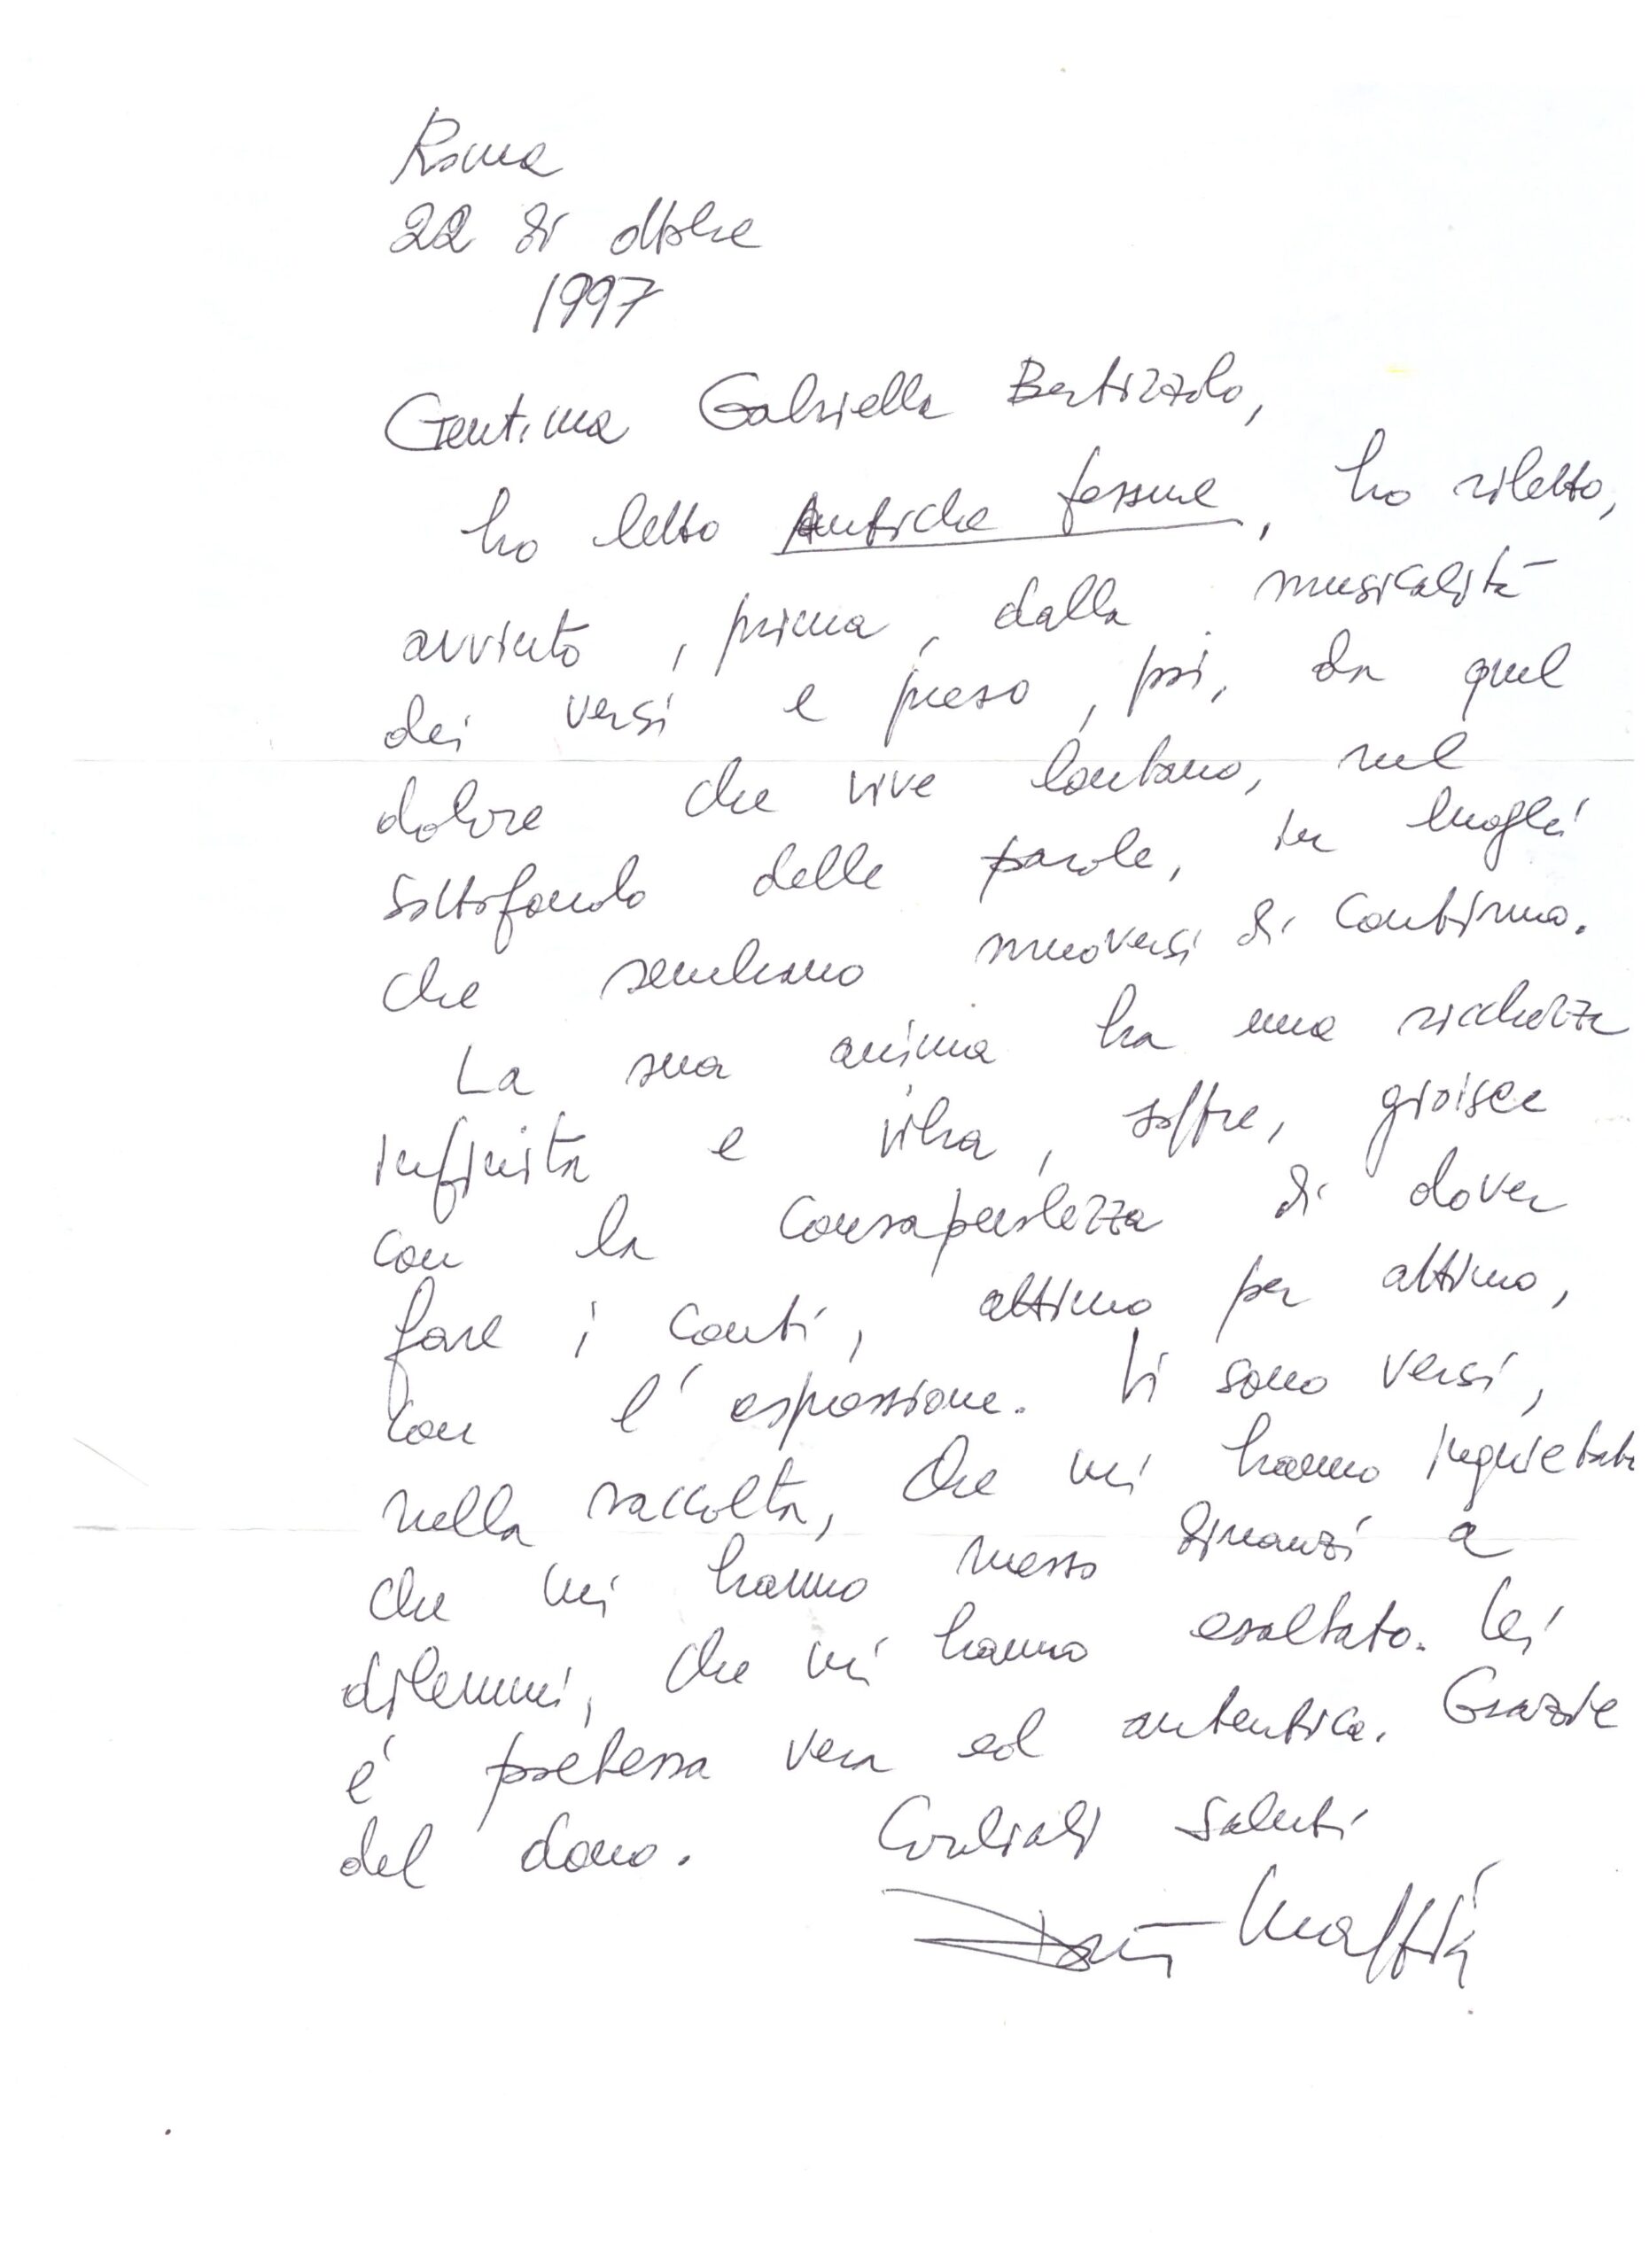 Roma
22 di ottobre
1997
Gent.ma Gabriella Bertizzolo,
ho letto Antiche fessure, ho riletto,
avvinto, prima, dalla musicalità
dei versi e preso, poi, da quel
dolore che vive lontano, nel
sottofondo delle parole, in luoghi
che sembrano muoversi di continuo.
La sua anima ha una ricchezza
infinita e vibra, soffre, gioisce
con la consapevolezza di dover
fare i conti, attimo per attimo,
con l'espressione. Vi sono versi,
nella raccolta, che mi hanno inquietato
che mi hanno messo dinanzi a
dilemmi, che mi hanno esaltato. Lei
è poetessa vera ed autentica. Grazie
del dono. Cordiali saluti
Dante Maffìa